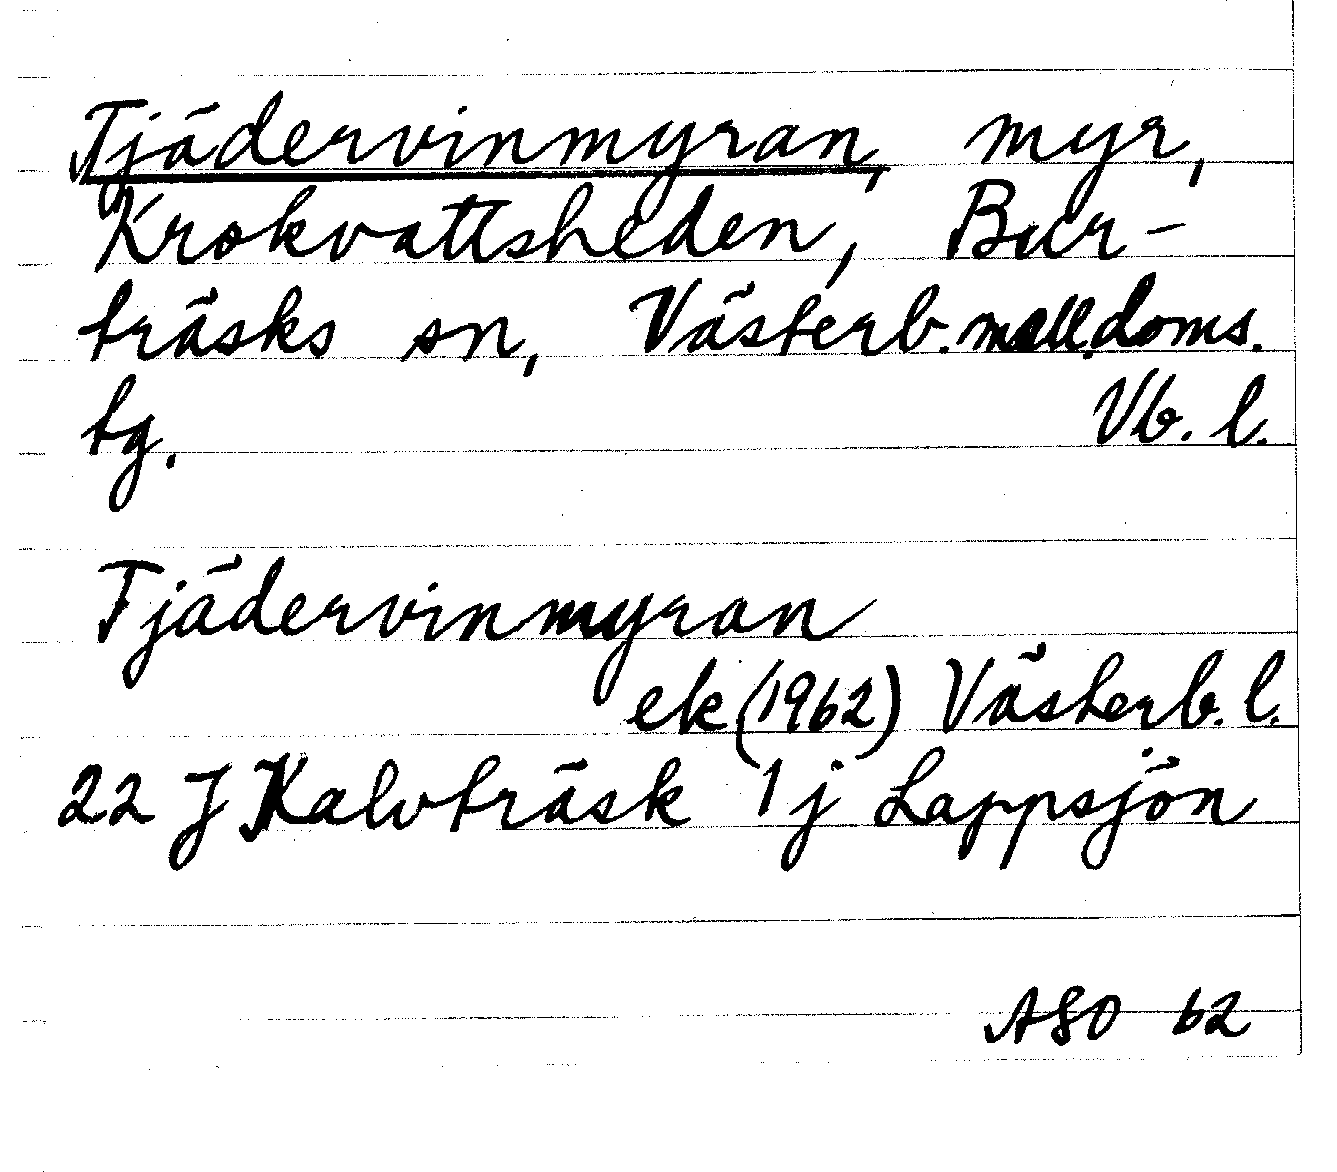 Tjädervinmyran, myr,
Krokvattsheden, Bur-
träsks sn, Västerb. mell. doms.
tg. Vb. l.
Tjädervinmyran
ek (1962) Västerb. l.
22 J Kalvträsk 1 j Lappsjön
ASO 62